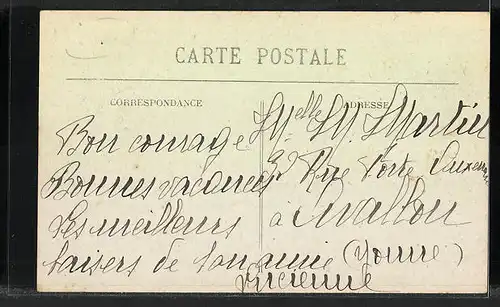 CARTE POSTALE
CORRESPONDANCE
ADRESSE
Bon courage
Bonnes vacances
Les meilleurs
baisers de ton amie
Lucienne
Melle M. Martin
Rue Porte Auxerroise
à Avallon
(Yonne)